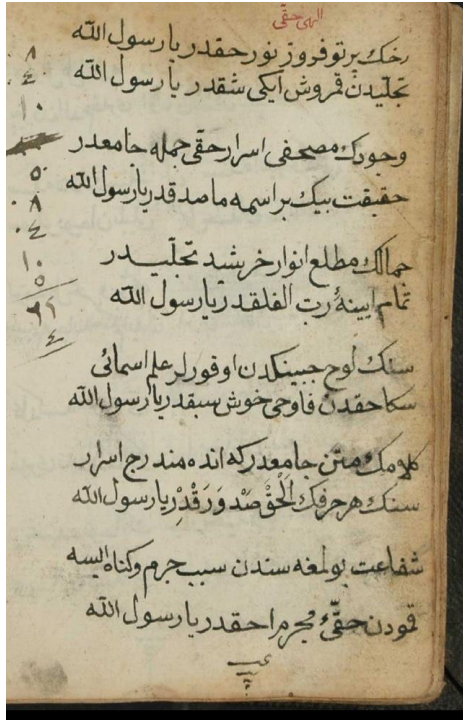 الهی حقّی
رخك پرتو فروز نور حقدر یا رسول الله
تجلیدن قمروش ایکی شقدر یا رسول الله
وجودك مصحفی اسرار حقی جمله جامعدر
حقیقت بیك بر اسمه ماصدقدر یا رسول الله
جمالك مطلع انوار خرشید تجلّیدر
تمام آیینهٔ ربّ الفلقدر یا رسول الله
سنك لوح جبینكدن اوقورلر علم اسمائی
سكا حقدن فاوحی خوش سبقدر یا رسول الله
كلامك متن جامعدر كه انده مندرج اسرار
سنك هر حرفك الحق صد ورقدر یا رسول الله
شفاعت بولمغه سندن سبب جرم و كناه ایسه
قمودن حقّیٔ مجرم احقدر یا رسول الله
۸
۴
۱۰
۵
۸
۴
۱۰
۵
۴